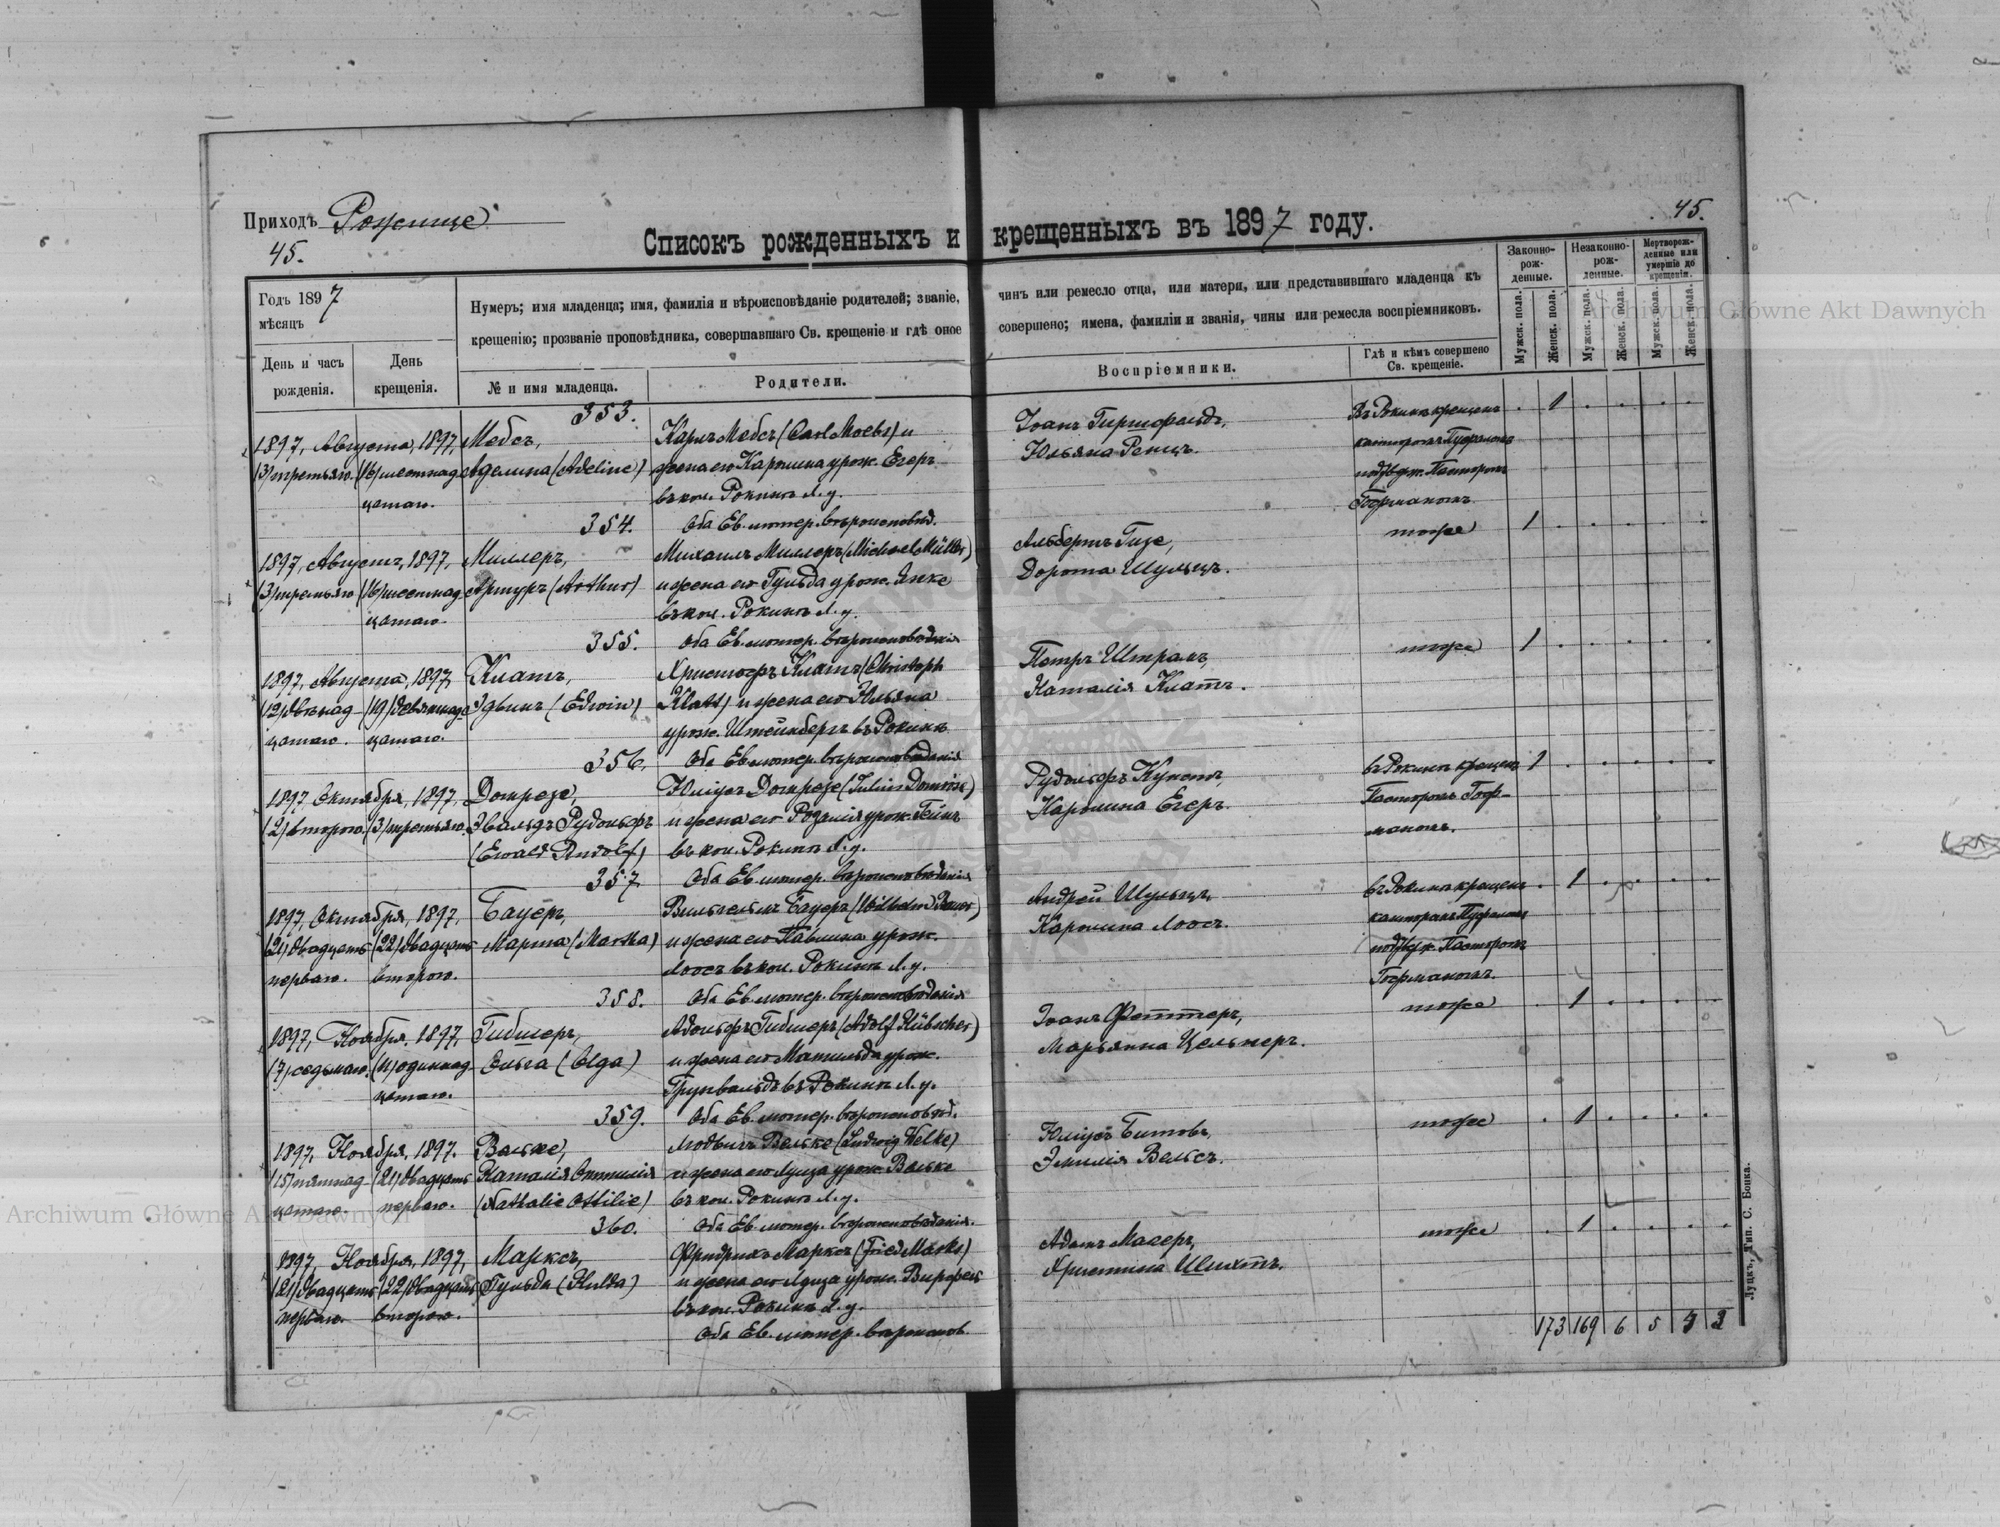 Приходъ Рожище
45.
Списокъ рожденныхъ и крещенныхъ въ 1897 году.
45.
Годъ 1897
мѣсяцъ
День и часъ рожденія.
День крещенія.
Нумеръ; имя младенца; имя, фамилія и вѣроисповѣданіе родителей; званіе, чинъ или ремесло отца, или матери, или представившаго младенца къ
крещенію; прозваніе проповѣдника, совершавшаго Св. крещеніе и гдѣ оное совершено; имена, фамиліи и званія, чины или ремесла воспріемниковъ.
№ и имя младенца.
Родители.
Воспріемники.
Гдѣ и кѣмъ совершено Св. крещеніе.
Законно-рож-денные.
Незаконно-рож-денные.
Мертворож-денные или умершіе до крещенія.
Мужск. пола.
Женск. пола.
Мужск. пола.
Женск. пола.
Мужск. пола.
Женск. пола.
353.
1897, Августа, 1897, Мебсъ,
(3) третьяго. (16) шестнад- Аделина (Adeline)
цатаго.
Карлъ Мебсъ (Carl Moebs) и
жена его Каролина урож. Егеръ
въ кол. Рокинѣ Л. у.
Оба Ев. лютер. вѣроисповѣд.
Іоанъ Гиршфельдъ,
Юльяна Ренцъ.
Въ Рокинѣ крещенъ
канторомъ
подтвер. Пасторомъ
Гофманомъ.
1
354.
1897, Августа, 1897, Миллеръ,
(3) третьяго (16) шестнад- Артуръ (Arthur)
цатаго.
Михаилъ Миллеръ (Michael Müller)
и жена его Гульда урож. Янке
въ кол. Рокинѣ Л. у.
Оба Ев. лютер. вѣроисповѣданія
Альбертъ Гизе,
Дорота Шульцъ.
тоже
1
355.
1897, Августа, 1897, Клатъ,
(12) двѣнад- (19) девятнад- Эдвинъ (Edwin)
цатаго. цатаго.
Христофъ Клатъ (Christoph
Klatt) и жена его Юльяна
урож. Штейнбергъ въ Рокинѣ
Оба Ев. лютер. вѣроисповѣданія
Петръ Штракъ,
Наталія Клатъ.
тоже
1
356.
1897, Октября, 1897, Домрезе,
(2) второго. (3) третьяго. Эвальдъ Рудольфъ
(Ewald Rudolf)
Юліусъ Домрезе (Julius Domröse)
и жена его Розалія урож. Гейнъ
въ кол. Рокинѣ Л. у.
Оба Ев. лютер. вѣроисповѣданія
Рудольфъ
Каролина Егеръ.
въ Рокинѣ крещенъ
Пасторомъ Гоф-
маномъ.
1
357.
1897, Октября, 1897, Бауеръ,
(21) двадцать (22) двадцать Марта (Martha)
перваго. второго.
Вильгельмъ Бауеръ (Wilhelm Bauer)
и жена его Павлина урож.
Лоосъ въ кол. Рокинѣ Л. у.
Оба Ев. лютер. вѣроисповѣданія
Андрей Шульцъ,
Каролина Лоосъ.
въ Рокинѣ крещенъ
канторомъ
подтвер. Пасторомъ
Гофманомъ.
1
358.
1897, Ноября, 1897, Гибшеръ,
(7) седьмаго. (11) одиннад- Ольга (Olga)
цатаго.
Адольфъ Гибшеръ (Adolf Hübscher)
и жена его Матильда урож.
Грунвальдъ въ Рокинѣ Л. у.
Оба Ев. лютер. вѣроисповѣд.
Іоанъ Феттеръ,
Марьянна Цельмеръ.
тоже
1
359.
1897, Ноября, 1897. Вельке,
(15) пятнад- (21) двадцать Наталія Оттилія
цатаго. перваго. (Nathalie Ottilie)
Людвигъ Вельке (Ludwig Welke)
и жена его Луиза урож. Вельке
въ кол. Рокинѣ Л. у.
Оба Ев. лютер. вѣроисповѣданія.
Юліусъ
Эмилія Вельсъ.
тоже
1
360.
1897, Ноября, 1897, Марксъ,
(21) двадцать (22) двадцать Гульда (Hulda)
перваго. второго.
Фридрихъ Марксъ (Fried Marks)
и жена его Луиза урож.
въ кол. Рокинѣ Л. у.
Оба Ев. лютер. вѣроисповѣд.
Адамъ Магеръ,
Христина Шлихтъ.
тоже
1
173 169 6 5 3
Луцкъ, Тип. С. Бонка.
Archiwum Główne Akt Dawnych
Archiwum Główne Akt Dawnych